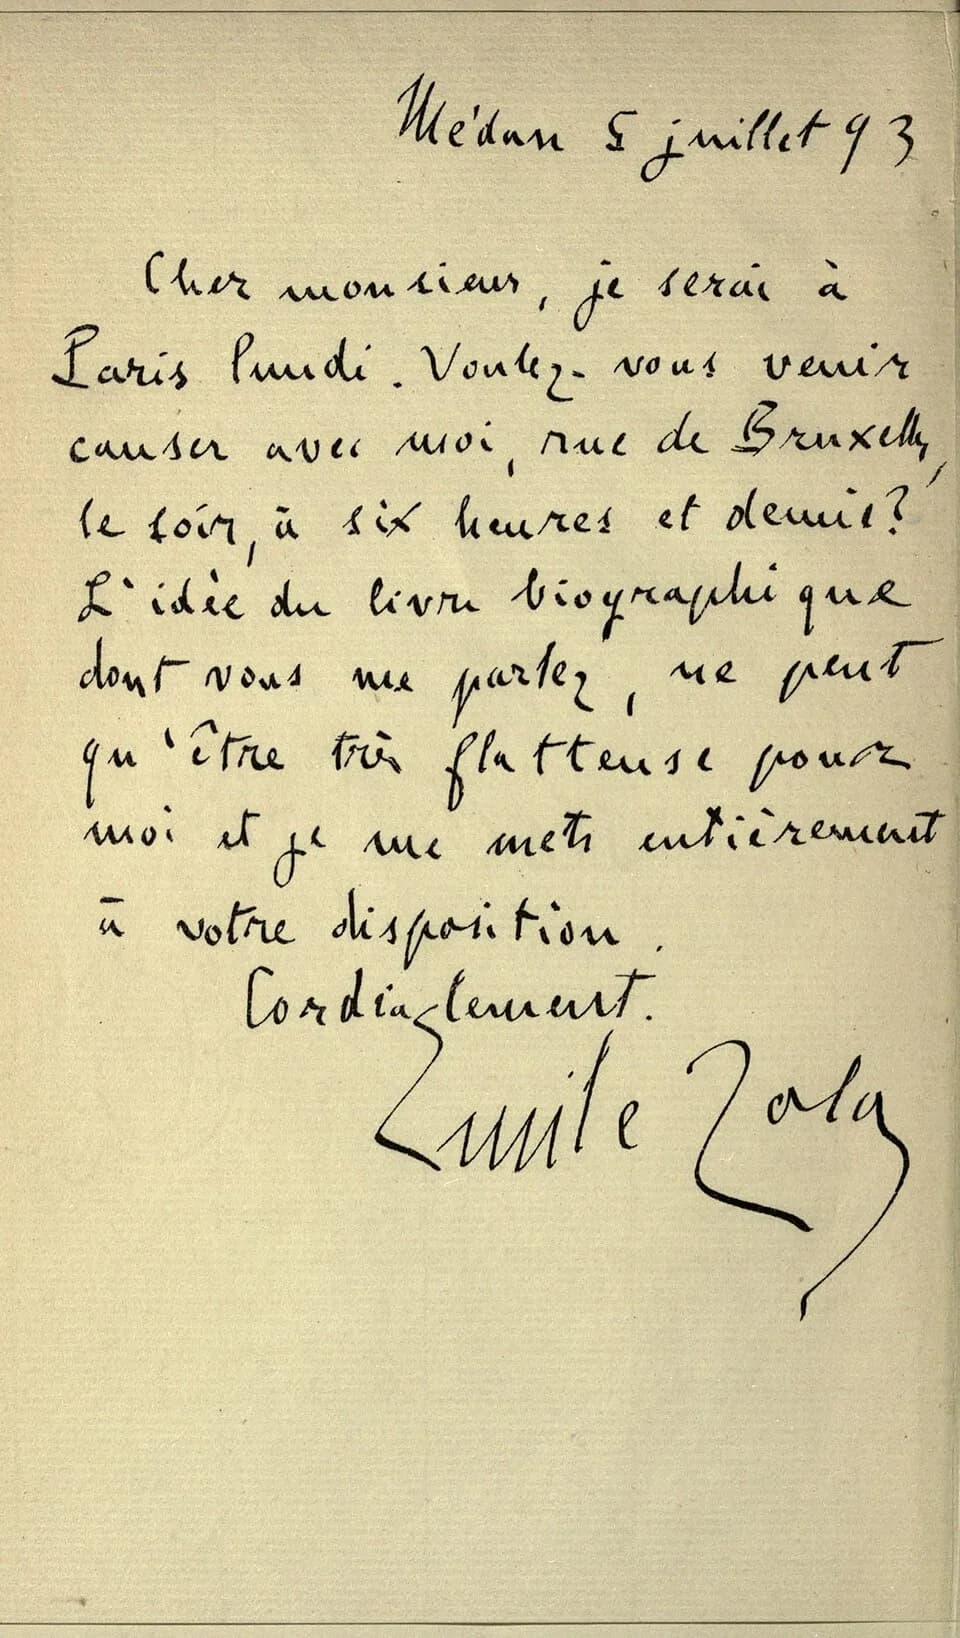 Médan 5 juillet 93
Cher monsieur, je serai à
Paris lundi. Voulez-vous venir
causer avec moi, rue de Bruxelles,
le soir, à six heures et demie?
L'idée du livre biographique
dont vous me parlez, ne peut
qu'être très flatteuse pour
moi et je me mets entièrement
à votre disposition.
Cordialement.
Emile Zola